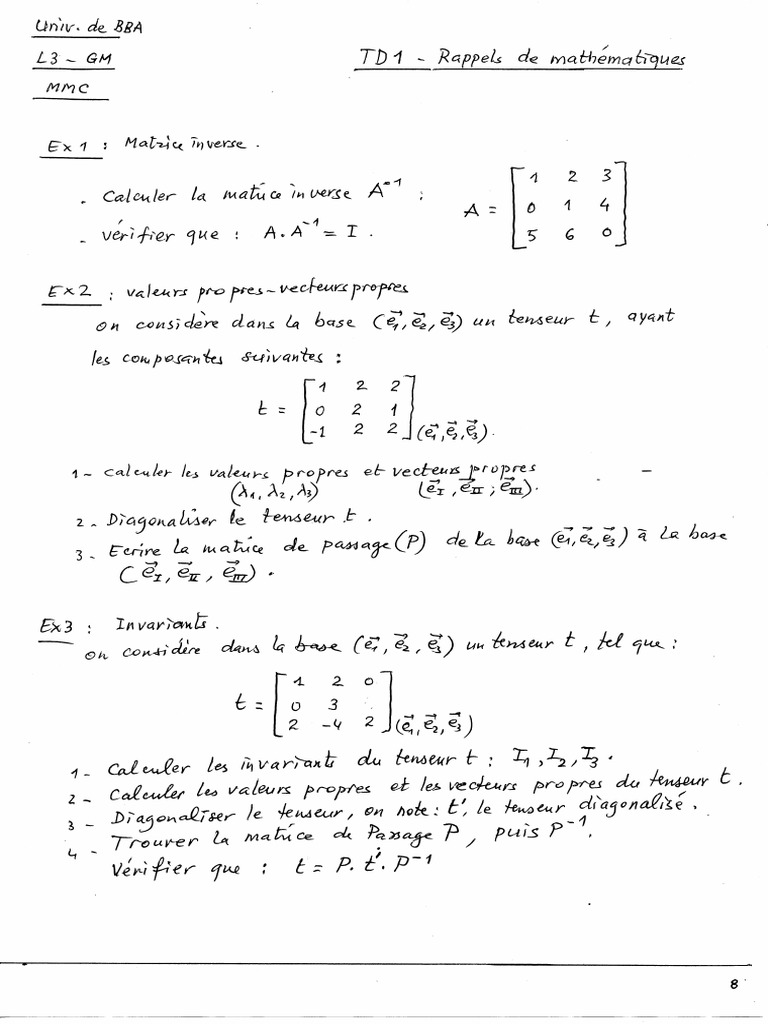 Univ. de BBA
L3 - GM
MMC
TD1 - Rappels de mathématiques
Ex1 : Matrice inverse.
- Calculer la matrice inverse A⁻¹ :
- vérifier que : A.A⁻¹ = I.
A = [1 2 3
0 1 4
5 6 0]
Ex2 : valeurs propres-vecteurs propres
on considère dans la base (e⃗₁, e⃗₂, e⃗₃) un tenseur t, ayant
les composantes suivantes :
t = [1 2 2
0 2 1
-1 2 2] (e⃗₁, e⃗₂, e⃗₃).
1- calculer les valeurs propres et vecteurs propres
(λ₁, λ₂, λ₃) (e⃗_I, e⃗_II ; e⃗_III).
2- Diagonaliser le tenseur t.
3- Ecrire la matrice de passage (P) de la base (e⃗₁, e⃗₂, e⃗₃) à la base
(e⃗_I, e⃗_II, e⃗_III).
Ex3 : Invariants.
on considère dans la base (e⃗₁, e⃗₂, e⃗₃) un tenseur t, tel que :
t = [1 2 0
0 3
2 -4 2] (e⃗₁, e⃗₂, e⃗₃)
1- Calculer les invariants du tenseur t : I₁, I₂, I₃.
2- Calculer les valeurs propres et les vecteurs propres du tenseur t.
3- Diagonaliser le tenseur, on note : t', le tenseur diagonalisé.
4- Trouver la matrice de Passage P, puis P⁻¹.
Vérifier que : t = P. t'. P⁻¹
8